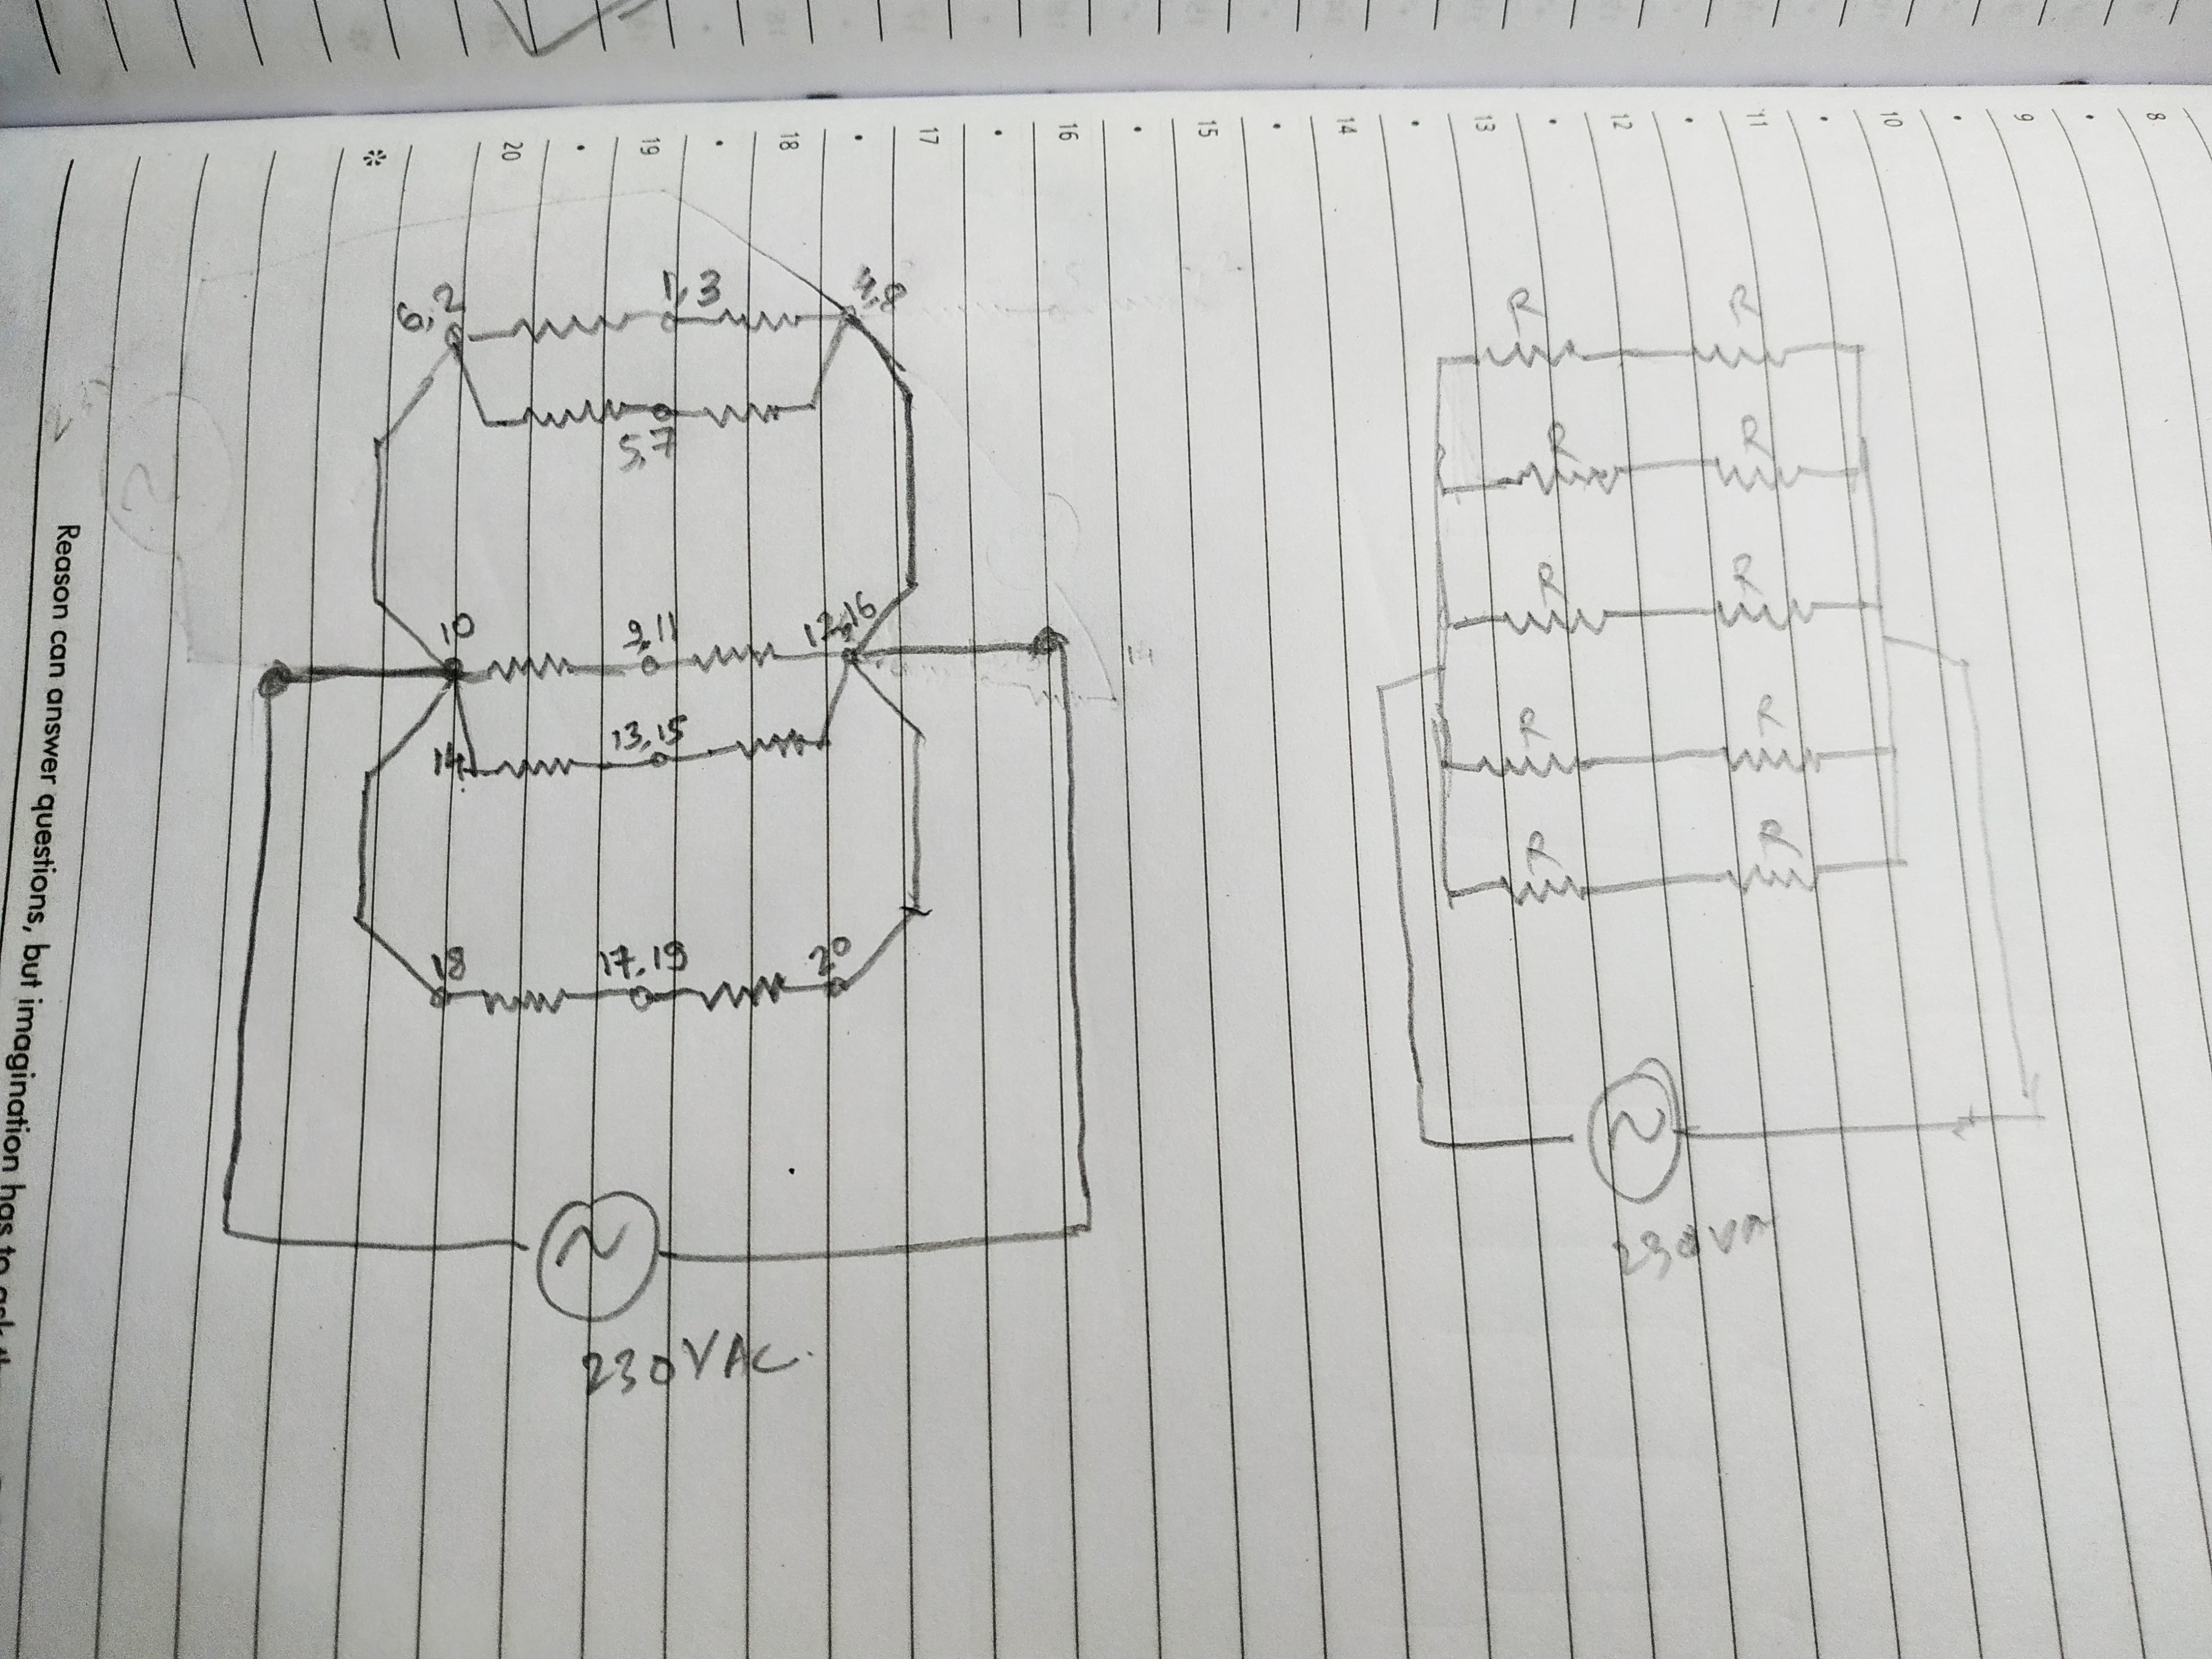 8
9
10
11
12
13
14
15
16
17
18
19
20
6,2
1,3
4,8
5,7
10
9,11
12,16
14
13,15
18
17,19
20
230VAC.
R R
R R
R R
R R
R R
Reason can answer questions, but imagination has to ask